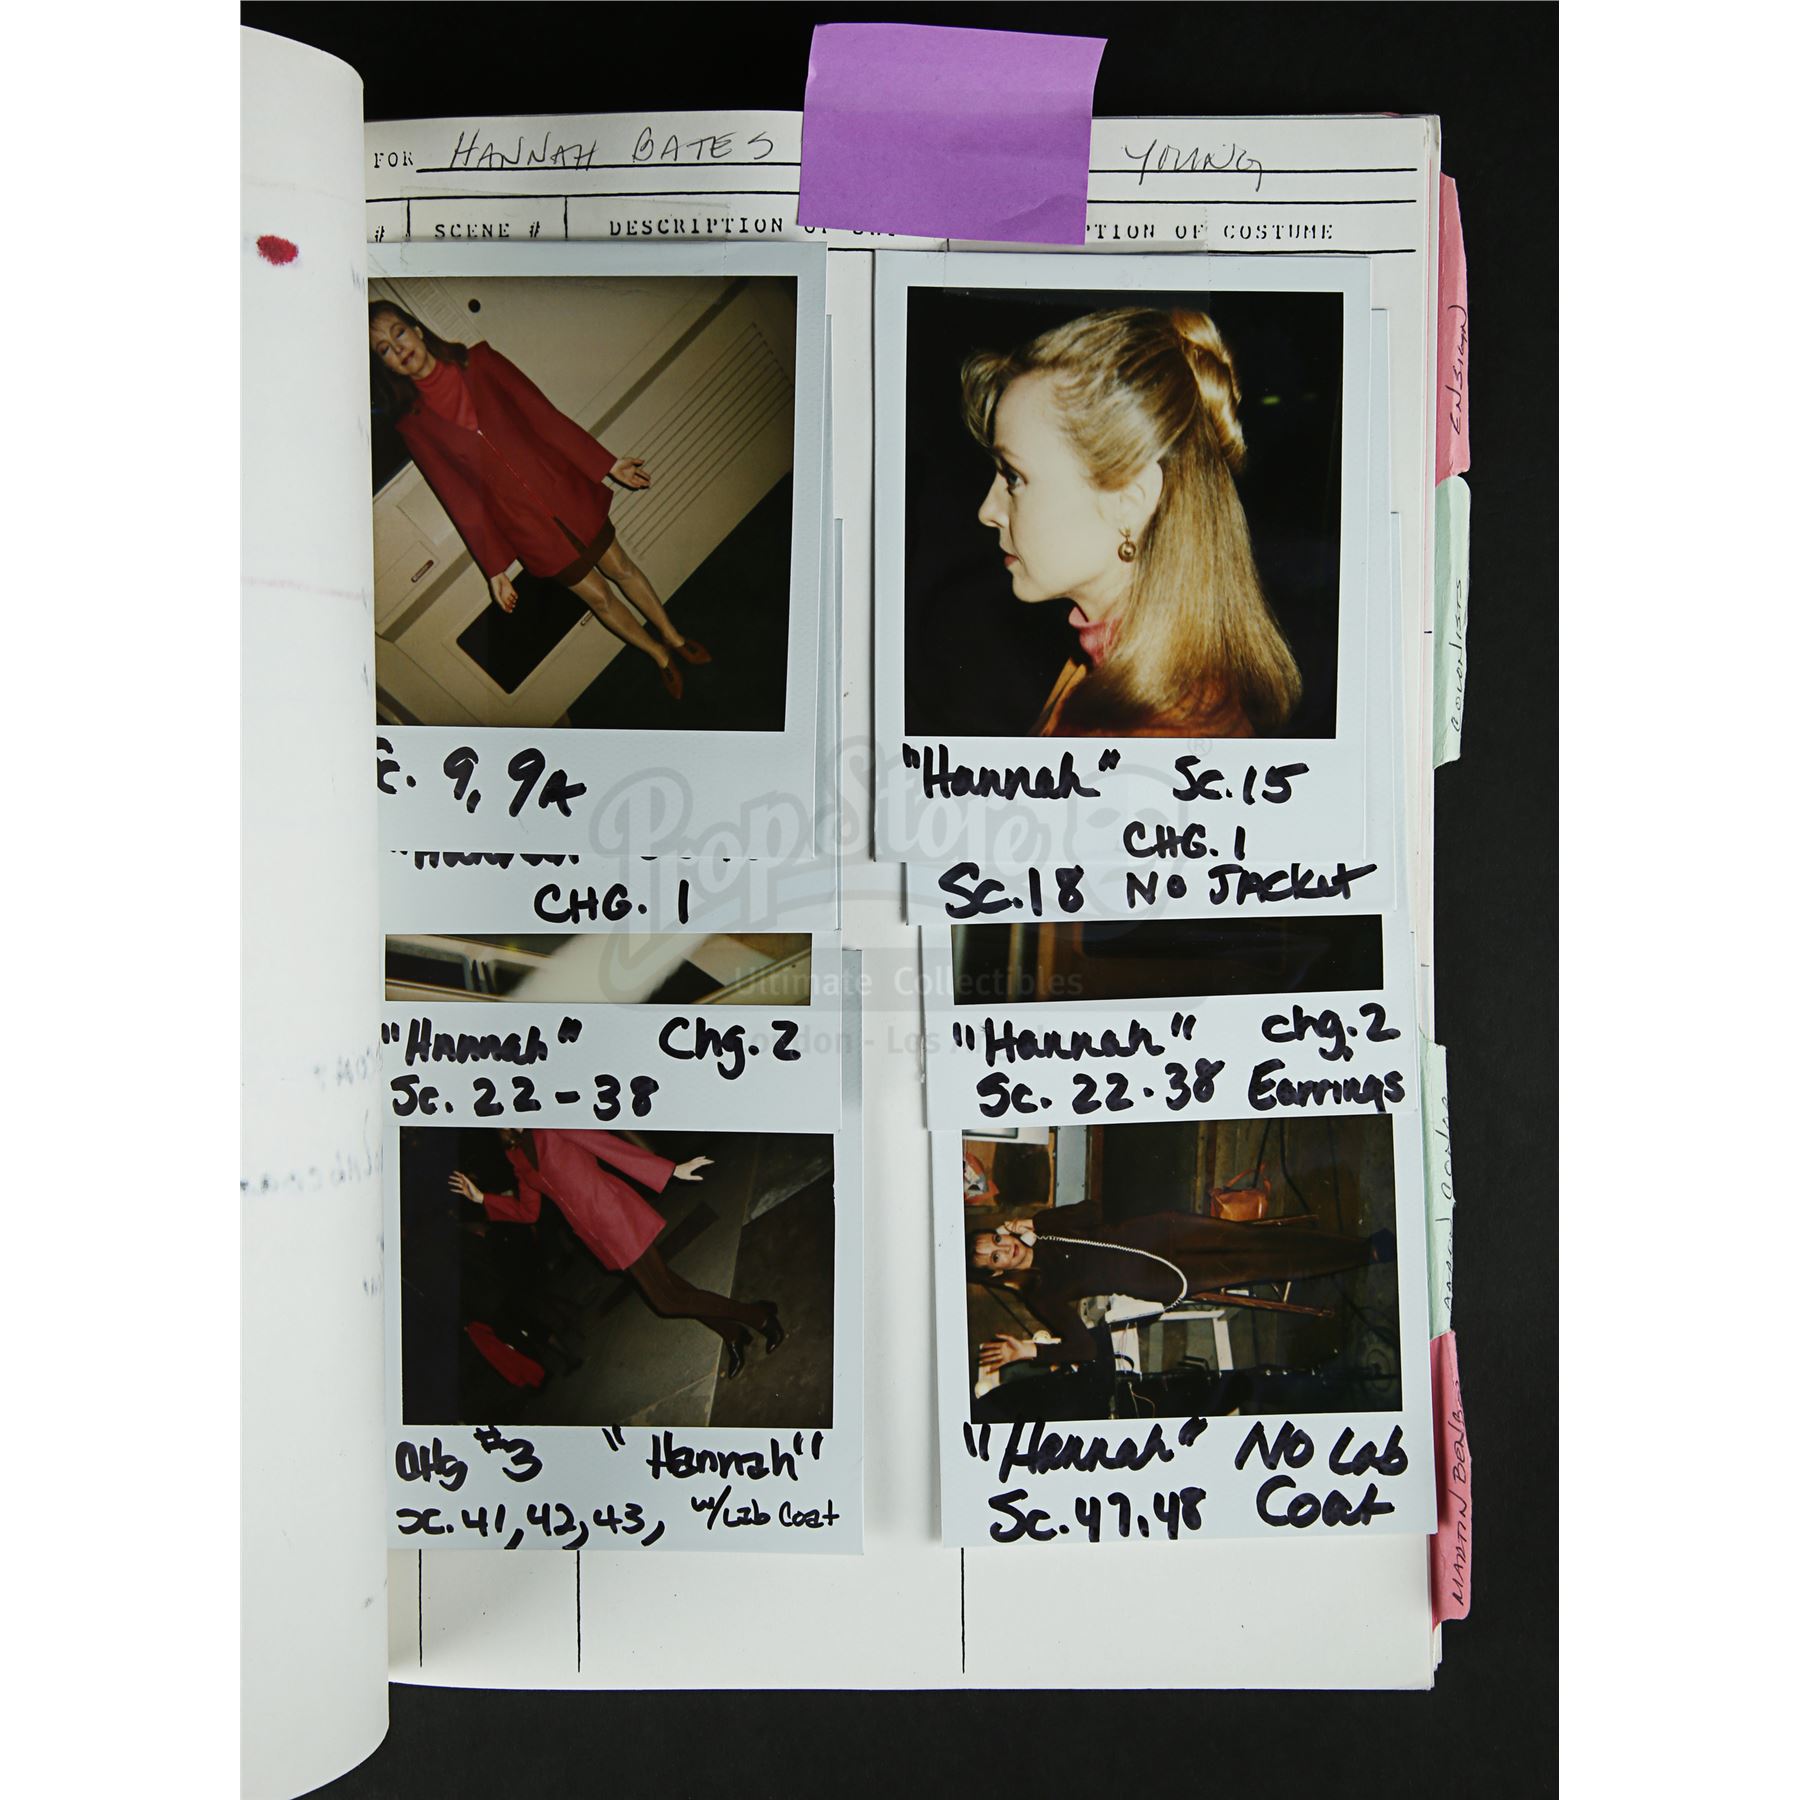 FOR HANNAH BATES YOUNG
# SCENE # DESCRIPTION OF COSTUME
Sc. 9, 9A
"Hannah" Sc. 15
CHG. 1
CHG. 1
Sc. 18 No Jacket
"Hannah" Chg. 2
Sc. 22-38
"Hannah" chg. 2
Sc. 22-38 Earrings
CHG #3 "Hannah"
Sc. 41, 42, 43, w/Lab Coat
"Hannah" No Lab
Sc. 47, 48 Coat
ENSIGN
COLONISTS
AARON CONOR
MARTIN BENB
PropStore
®
Ultimate Collectibles
London - Los